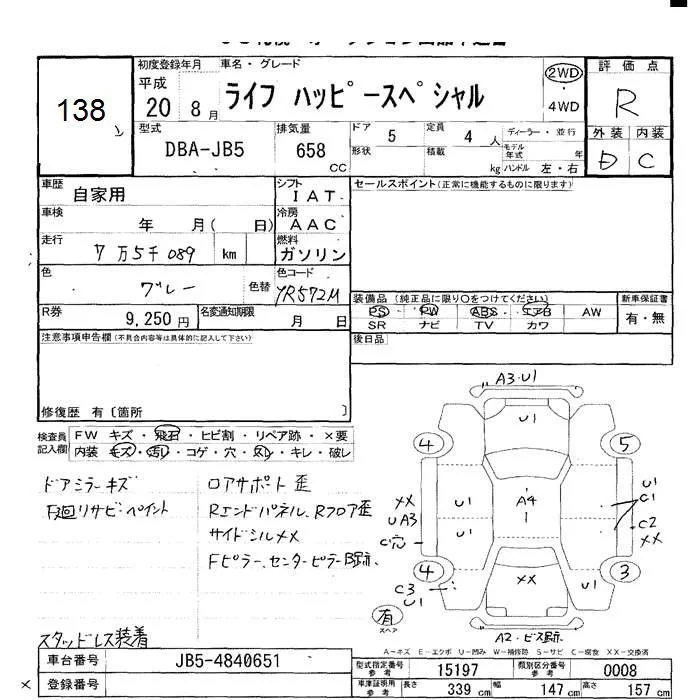 138
初度登録年月
車名・グレード
平成
20 8月
ライフ ハッピースペシャル
2WD
4WD
評価点
R
外装 内装
D C
型式
DBA-JB5
排気量
658
CC
ドア
5
形状
定員
4人
積載
kg
ディーラー・並行
モデル年式 年
ハンドル 左・右
車歴
自家用
シフト
IAT
セールスポイント(正常に機能するものに限ります)
車検
年 月( 日)
冷房
AAC
走行
7万5千089 km
燃料
ガソリン
色
グレー
色替
色コード
YR572M
装備品(純正品に限り〇をつけてください)
PS PW ABS エアB AW
SR ナビ TV カワ
新車保証書
有・無
R券
9,250円
名変通知期限
月 日
後日品
注意事項申告欄(不具合内容等は具体的に記入して下さい)
修復歴 有〔箇所 〕
検査員記入欄
FW キズ・飛石・ヒビ割・リペア跡・×要
内装 キズ・汚レ・コゲ・穴・スレ・キレ・破レ
ドアミラーキズ
ロアサポート歪
下廻リサビ・ペイント
Rエンドパネル、Rフロア歪
サイドシルXX
Fピラー、センターピラーB跡
スタッドレス装着
A3・U1
U1
4
5
XX
UA3
C穴
U1
U1
A4
1
U1
C1
C2
XX
4
3
C3
U1
XX
U1
有
スペア
A2・ビス跡
A-キズ E-エクボ U-凹み W-補修跡 S-サビ C-腐食 XX-交換済
車台番号
JB5-4840651
登録番号
型式指定番号
参考
15197
類別区分番号
参考
0008
車庫証明用
参考
長さ
339 cm
幅
147 cm
高さ
157 cm